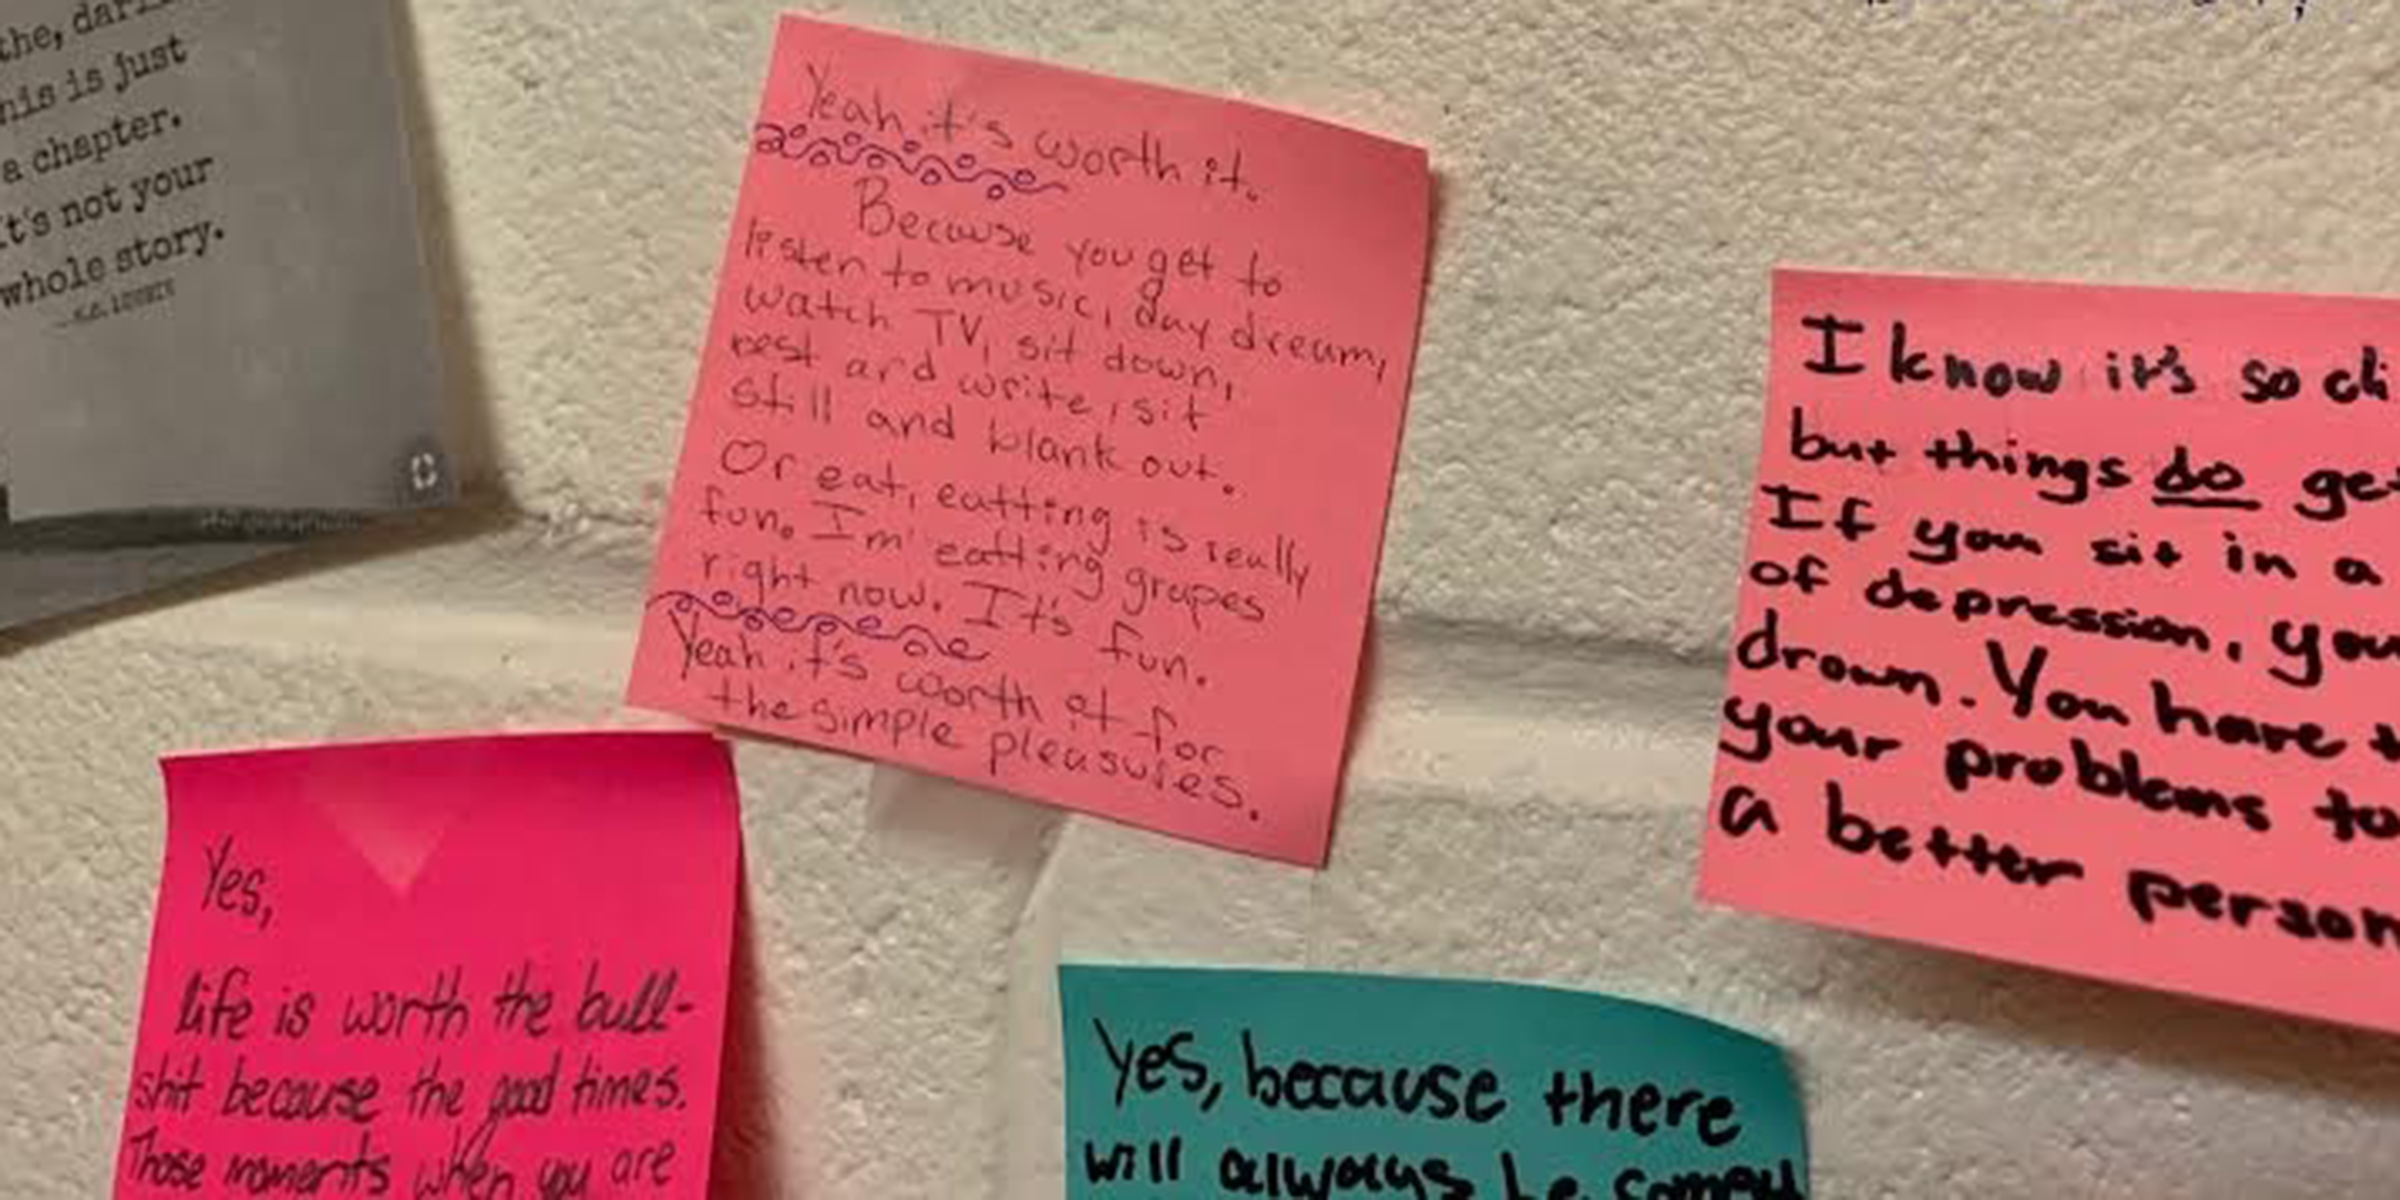 the,
this is just
a chapter.
It's not your
whole story.
Yeah it's worth it.
Because you get to
listen to music, day dream,
watch TV, sit down,
rest and write, sit
still and blank out.
Or eat, eatting is really
fun. Im' eatting grapes
right now. It's fun.
Yeah it's worth it for
the simple pleasures.
I know it's so
but things do
If you sit in a
of depression, you
drown. You have
your problems to
a better person
Yes,
life is worth the bull-
shit because the good times.
Those moments when you are
Yes, because there
will always be